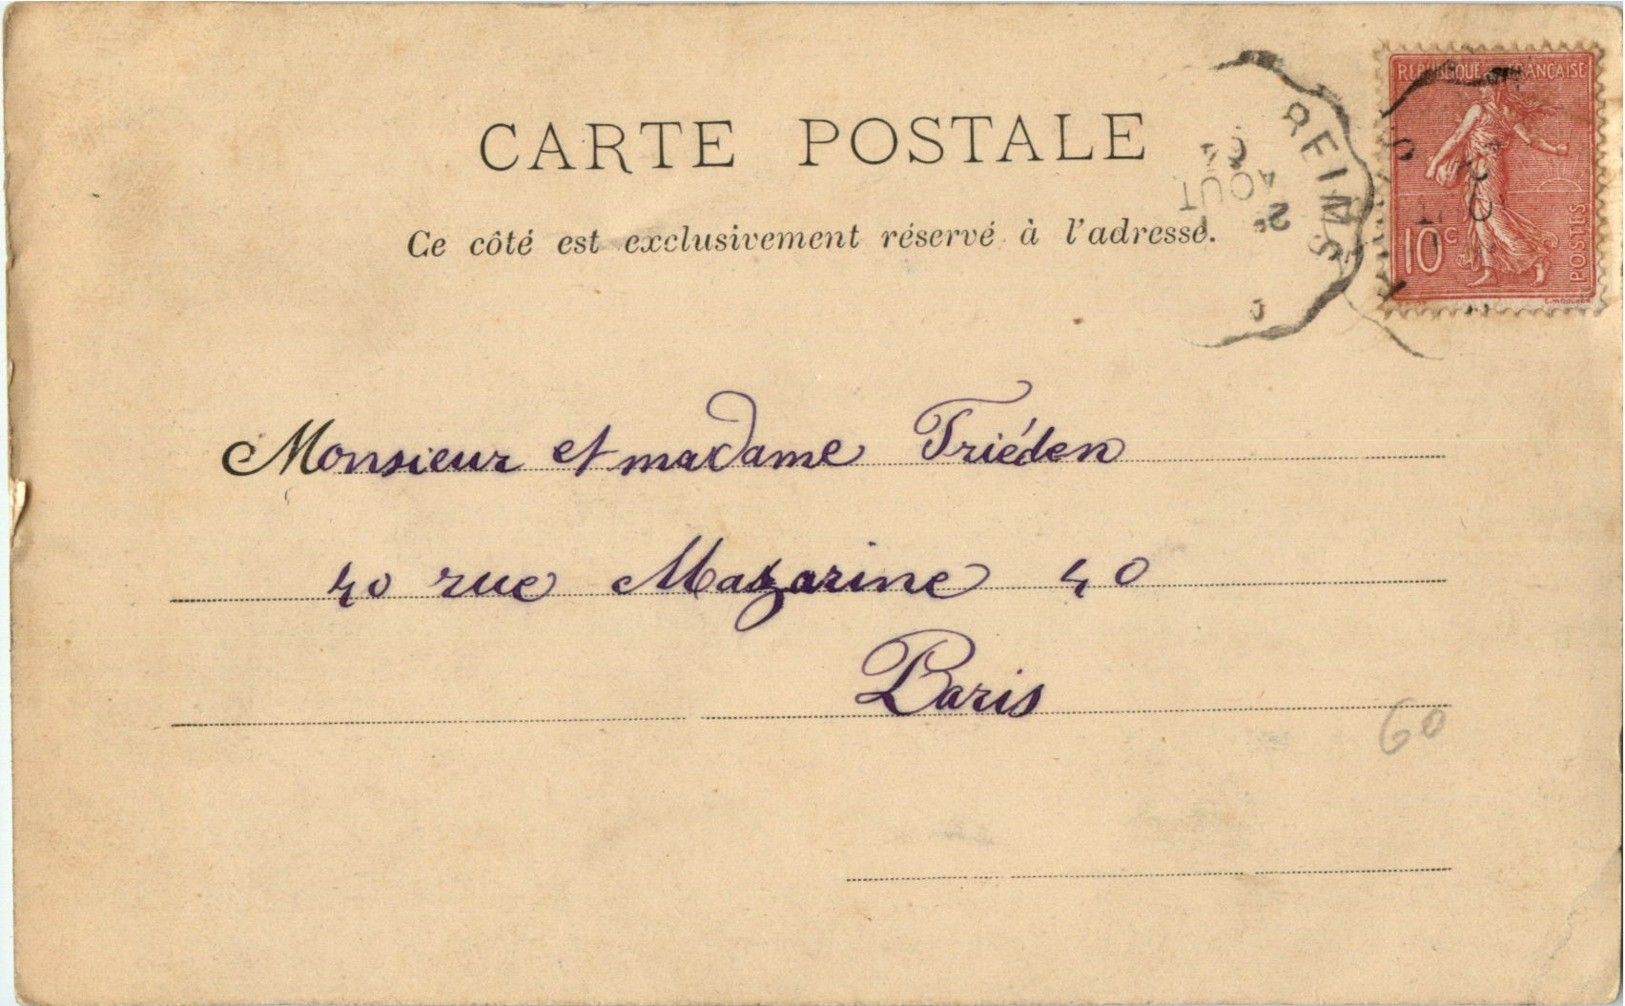 CARTE POSTALE
Ce côté est exclusivement réservé à l'adresse.
REPUBLIQUE FRANÇAISE
10c
POSTES
REIMS
2e
AOUT
04
Monsieur et madame Triéden
40 rue Mazarine 40
Paris
60